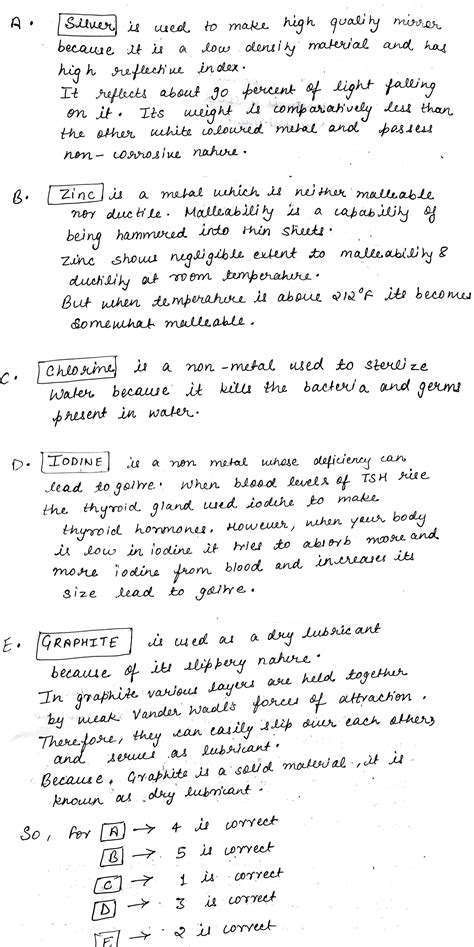 A. Silver is used to make high quality mirror
because it is a low density material and has
high reflective index.
It reflects about 90 percent of light falling
on it. Its weight is comparatively less than
the other white coloured metal and possess
non-corrosive nature.
B. Zinc is a metal which is neither malleable
nor ductile. Malleability is a capability of
being hammered into thin sheets.
Zinc shows negligible extent to malleability &
ductility at room temperature.
But when temperature is above 212°F its becomes
somewhat malleable.
C. Chlorine is a non-metal used to sterlize
water because it kills the bacteria and germs
present in water.
D. IODINE is a non metal whose deficiency can
lead to goitre. When blood levels of TSH rise
the thyroid gland used iodine to make
thyroid hormones. However, when your body
is low in iodine it tries to absorb more and
more iodine from blood and increases its
size lead to goitre.
E. GRAPHITE is used as a dry lubricant
because of its slippery nature.
In graphite various layers are held together
by weak Vander Waal's forces of attraction.
Therefore, they can easily slip over each others
and serves as lubricant.
Because, Graphite is a solid material, it is
known as dry lubricant.
So, for A → 4 is correct
B → 5 is correct
C → 1 is correct
D → 3 is correct
E → 2 is correct